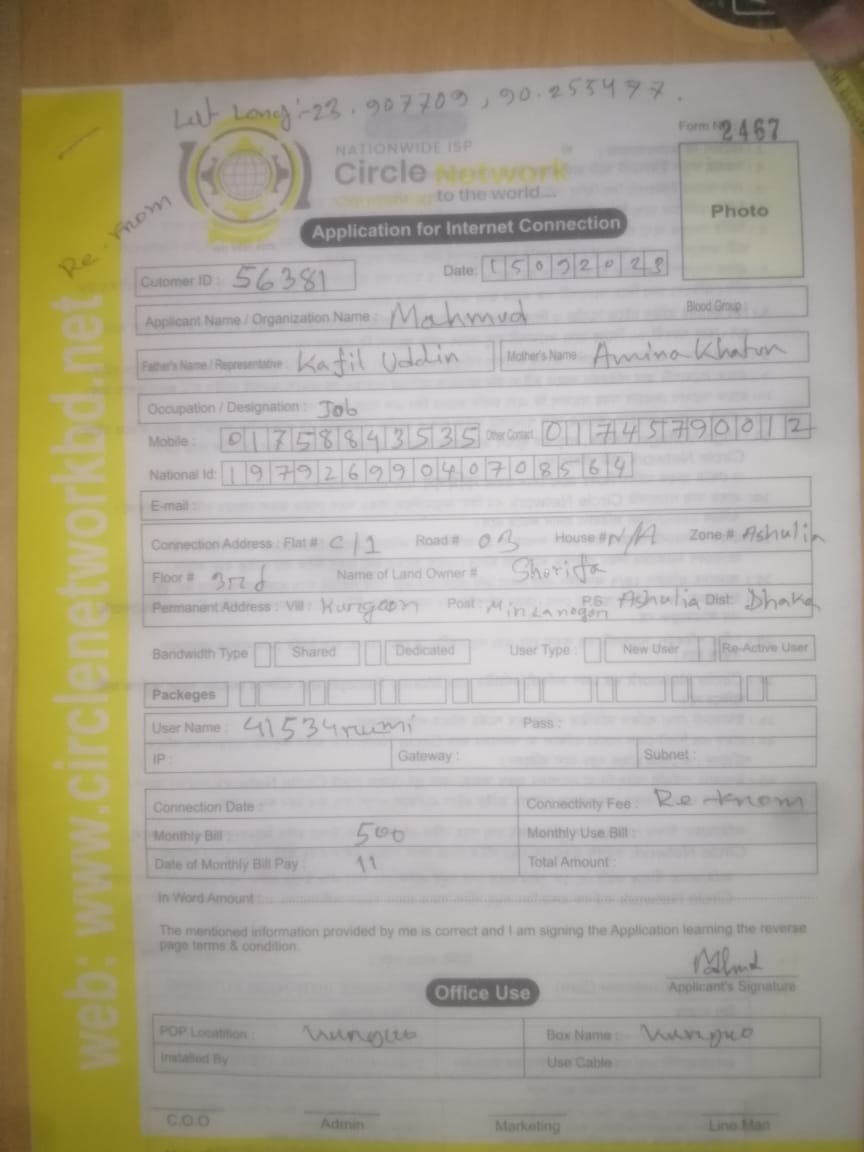 Let Long:-23.907709, 90.255477.
Form No 2467
NATIONWIDE ISP
Circle Network
Connecting to the world....
Photo
Re-knom
Application for Internet Connection
Cutomer ID : 56381 Date: 15092023
Applicant Name / Organization Name : Mahmud Blood Group :
Father's Name / Representative : Kafil Uddin Mother's Name : Amina Khatun
Occupation / Designation : Job
Mobile : 01758843535 Other Contact 01745790012
National Id: 19792699040708564
E-mail :
Connection Address : Flat # C/1 Road # 03 House # N/A Zone # Ashulia
Floor # 3rd Name of Land Owner # Shorifa
Permanent Address : Vill : Kungaon Post : P.S. Ashulia Dist: Dhaka
Bandwidth Type Shared Dedicated User Type : New User Re-Active User
Packeges
User Name : 41534rumi Pass :
IP : Gateway : Subnet :
Connection Date : Connectivity Fee : Re-knom
Monthly Bill : 500 Monthly Use Bill :
Date of Monthly Bill Pay : 11 Total Amount :
In Word Amount :
The mentioned information provided by me is correct and I am signing the Application learning the reverse
page terms & condition.
Applicant's Signature
Office Use
POP Locatition : Box Name :
Installed By Use Cable :
C.O.O Admin Marketing Line Man
web: www.circlenetworkbd.net